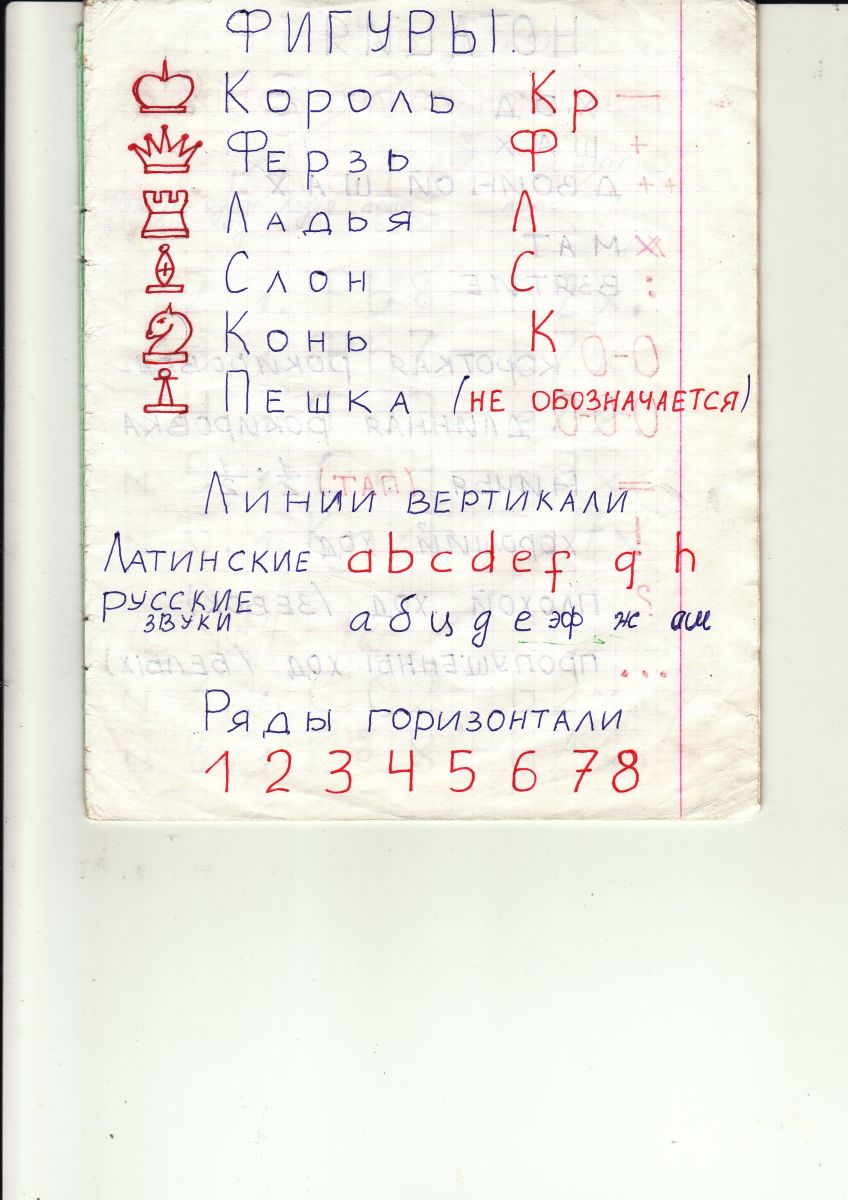 ФИГУРЫ.
Король Кр
Ферзь Ф
Ладья Л
Слон С
Конь К
Пешка (НЕ ОБОЗНАЧАЕТСЯ)
Линии вертикали
Латинские a b c d e f g h
русские а б ц д е эф ж аш
звуки
Ряды горизонтали
1 2 3 4 5 6 7 8